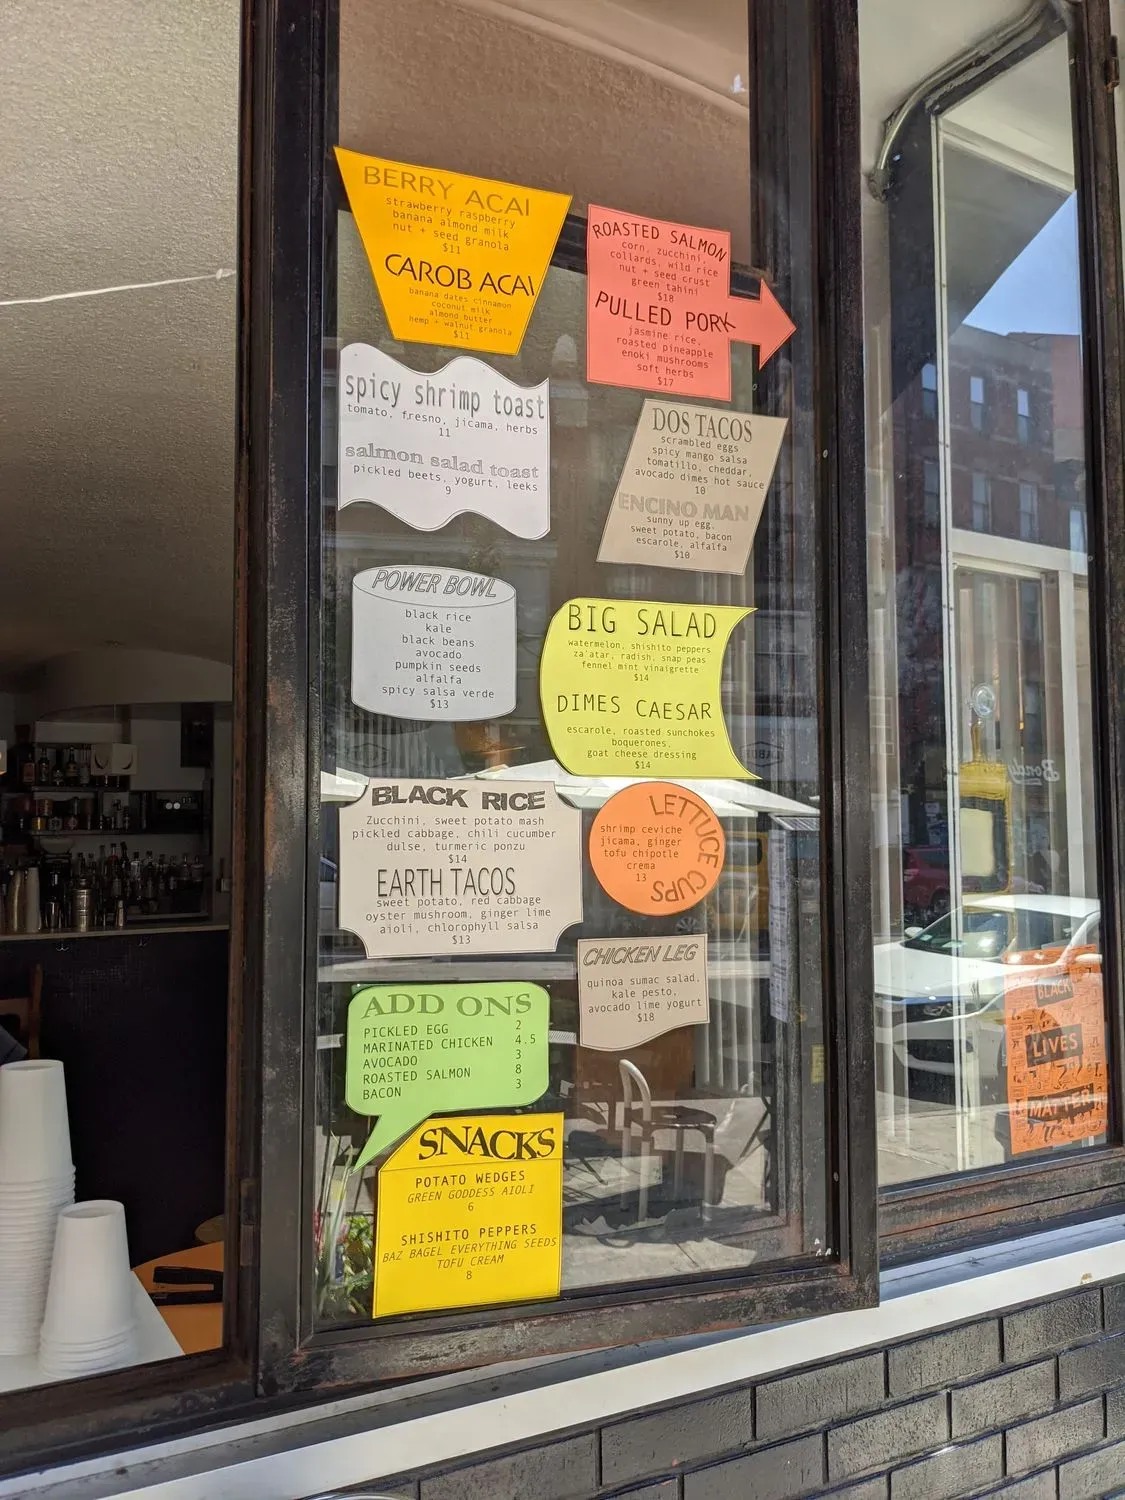 BERRY ACAI
strawberry raspberry
banana almond milk
nut + seed granola
$11
CAROB ACAI
banana dates cinnamon
coconut milk
almond butter
hemp + walnut granola
$11
ROASTED SALMON
corn, zucchini,
collards, wild rice
nut + seed crust
green tahini
$18
PULLED PORK
jasmine rice,
roasted pineapple
enoki mushrooms
soft herbs
$17
spicy shrimp toast
tomato, fresno, jicama, herbs
11
salmon salad toast
pickled beets, yogurt, leeks
9
DOS TACOS
scrambled eggs
spicy mango salsa
tomatillo, cheddar,
avocado dimes hot sauce
10
ENCINO MAN
sunny up egg,
sweet potato, bacon
escarole, alfalfa
$10
POWER BOWL
black rice
kale
black beans
avocado
pumpkin seeds
alfalfa
spicy salsa verde
$13
BIG SALAD
watermelon, shishito peppers
za'atar, radish, snap peas
fennel mint vinaigrette
$14
DIMES CAESAR
escarole, roasted sunchokes
boquerones,
goat cheese dressing
$14
BLACK RICE
Zucchini, sweet potato mash
pickled cabbage, chili cucumber
dulse, turmeric ponzu
$14
EARTH TACOS
sweet potato, red cabbage
oyster mushroom, ginger lime
aioli, chlorophyll salsa
$13
LETTUCE CUPS
shrimp ceviche
jicama, ginger
tofu chipotle
crema
13
CHICKEN LEG
quinoa sumac salad,
kale pesto,
avocado lime yogurt
$18
ADD ONS
PICKLED EGG 2
MARINATED CHICKEN 4.5
AVOCADO 3
ROASTED SALMON 8
BACON 3
SNACKS
POTATO WEDGES
GREEN GODDESS AIOLI
6
SHISHITO PEPPERS
BAZ BAGEL EVERYTHING SEEDS
TOFU CREAM
8
BLACK
LIVES
MATTER